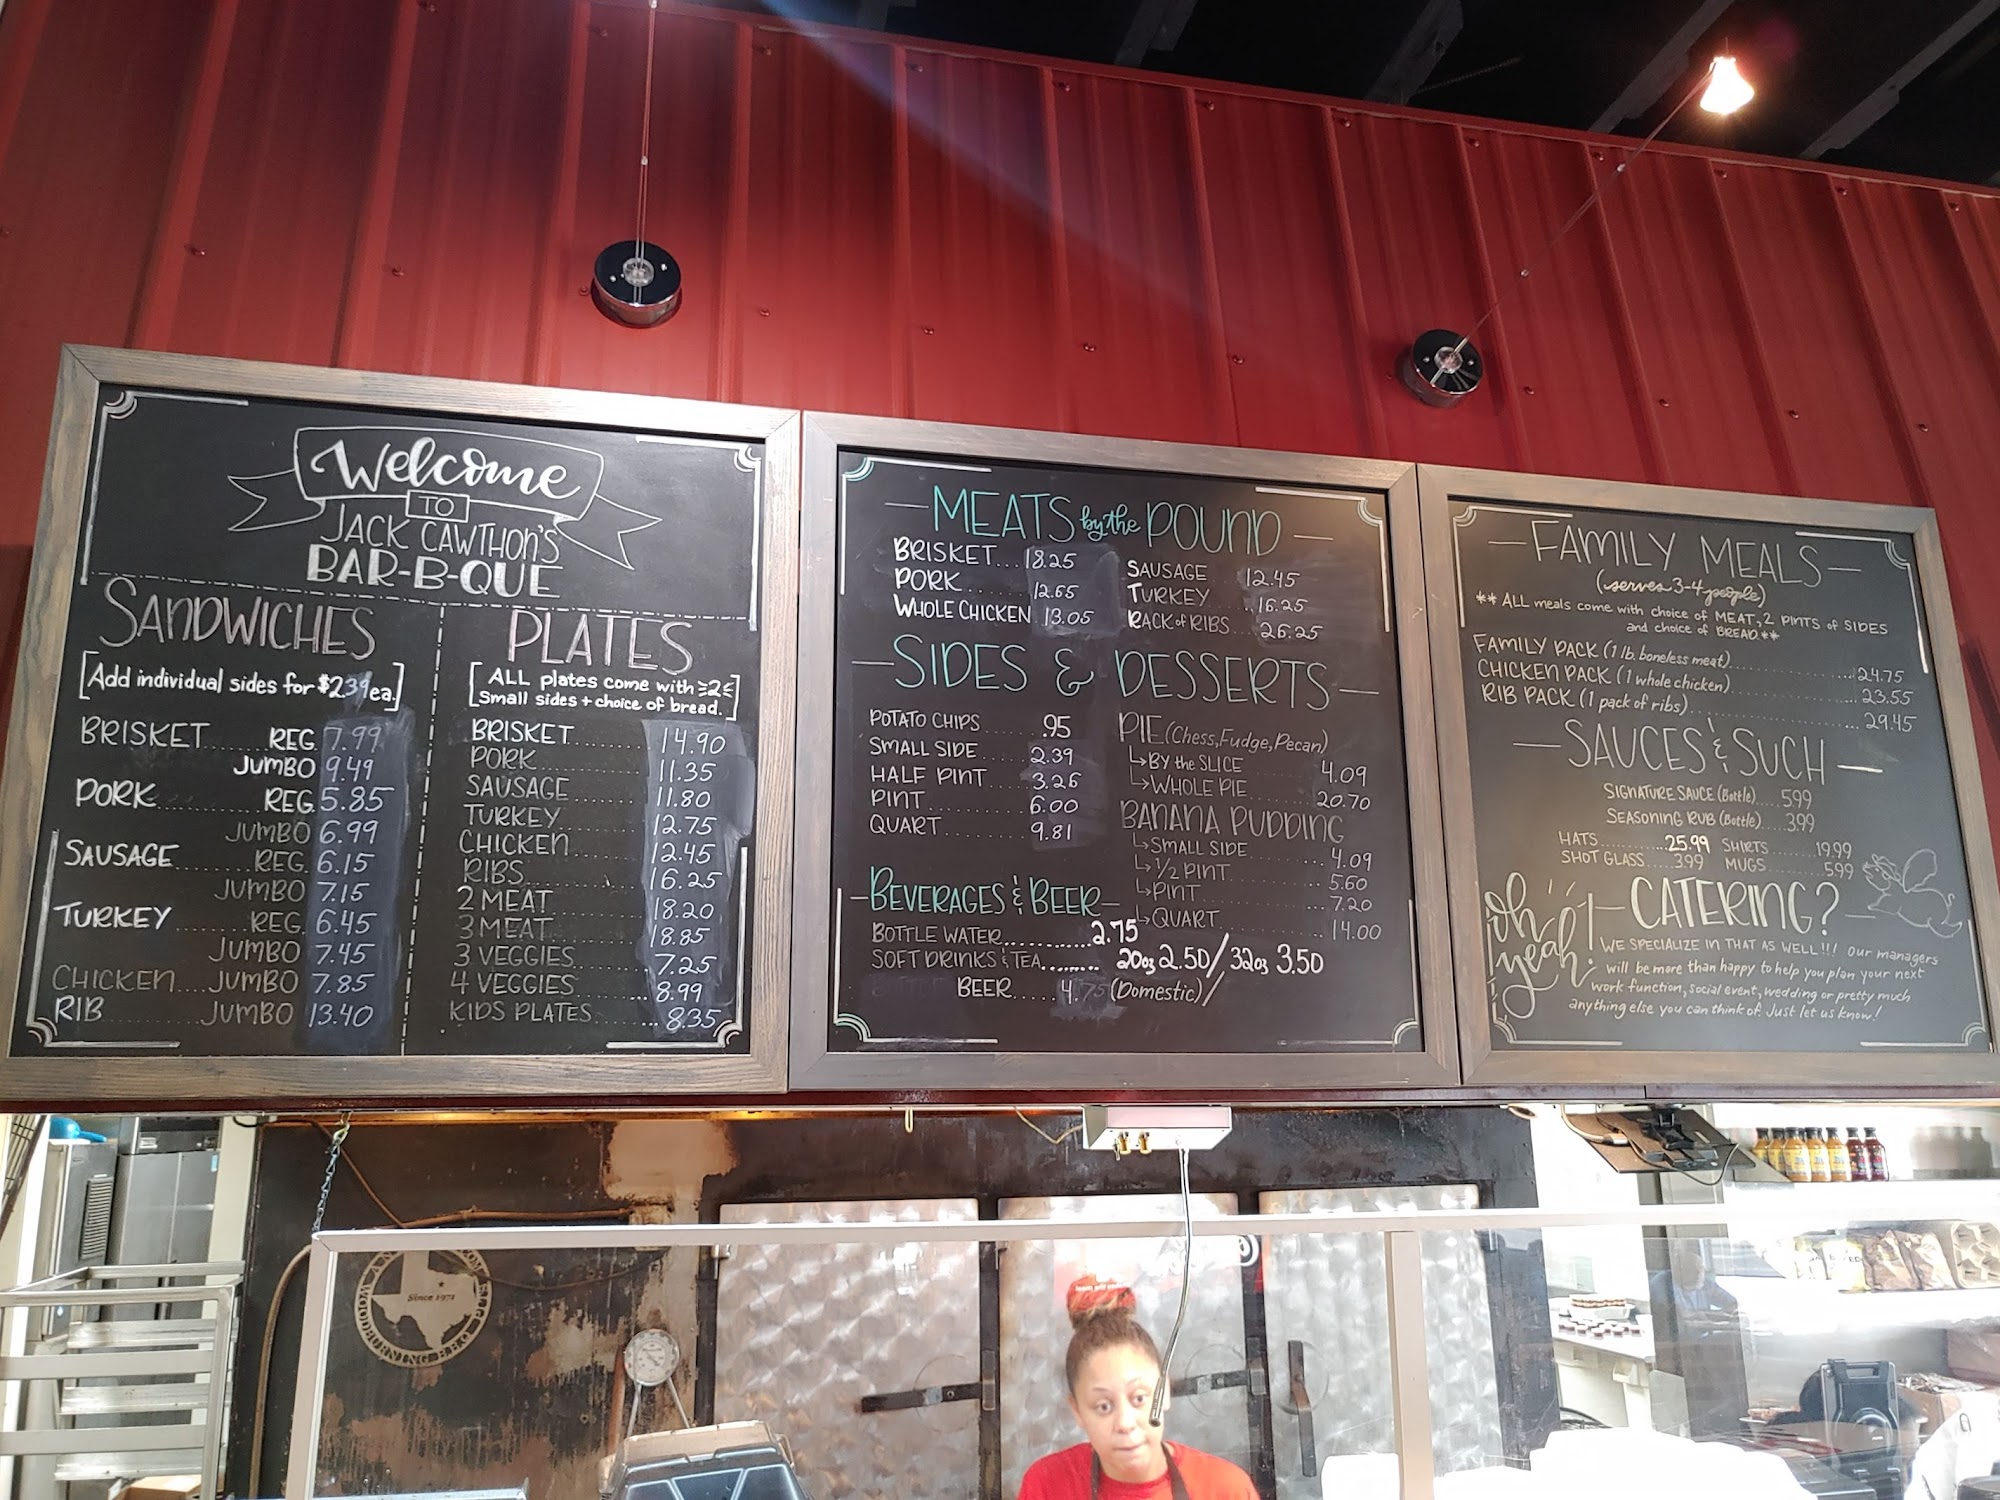 Welcome
TO
JACK CAWTHON'S
BAR-B-QUE
SANDWICHES
[Add individual sides for $2.39 ea.]
BRISKET ...... REG. 7.99
JUMBO 9.49
PORK ........... REG. 5.85
JUMBO 6.99
SAUSAGE ........ REG. 6.15
JUMBO 7.15
TURKEY ......... REG. 6.45
JUMBO 7.45
CHICKEN .... JUMBO 7.85
RIB ............ JUMBO 13.40
PLATES
[ALL plates come with 2
Small sides + choice of bread.]
BRISKET ......... 14.90
PORK ............ 11.35
SAUSAGE ......... 11.80
TURKEY .......... 12.75
CHICKEN ......... 12.45
RIBS ............ 16.25
2 MEAT .......... 18.20
3 MEAT .......... 18.85
3 VEGGIES ....... 7.25
4 VEGGIES ....... 8.99
KIDS PLATES ..... 8.35
—MEATS by the POUND—
BRISKET... 18.25
PORK ....... 12.65
WHOLE CHICKEN 13.05
SAUSAGE 12.45
TURKEY .. 16.25
RACK of RIBS ... 26.25
—SIDES & DESSERTS—
POTATO CHIPS .95
SMALL SIDE ..... 2.39
HALF PINT ...... 3.26
PINT ........... 6.00
QUART .......... 9.81
PIE (Chess, Fudge, Pecan)
↳BY the SLICE ....... 4.09
↳WHOLE PIE ....... 20.70
BANANA PUDDING
↳SMALL SIDE ....... 4.09
↳1/2 PINT ....... 5.60
↳PINT ....... 7.20
↳QUART ....... 14.00
—BEVERAGES & BEER—
BOTTLE WATER ........... 2.75
SOFT DRINKS & TEA ........ 20oz 2.50 / 32oz 3.50
BEER ..... 4.75 (Domestic)
—FAMILY MEALS—
(serves 3-4 people)
** ALL meals come with choice of MEAT, 2 PINTS of SIDES
and choice of BREAD.**
FAMILY PACK (1 lb. boneless meat) ........ 24.75
CHICKEN PACK (1 whole chicken) ........ 23.55
RIB PACK (1 pack of ribs) ........ 29.45
—SAUCES & SUCH—
SIGNATURE SAUCE (Bottle) .... 5.99
SEASONING RUB (Bottle) .... 3.99
HATS .......... 25.99 SHIRTS ....... 19.99
SHOT GLASS .... 3.99 MUGS ......... 5.99
oh yeah!
—CATERING?—
WE SPECIALIZE IN THAT AS WELL!!! Our managers
will be more than happy to help you plan your next
work function, social event, wedding or pretty much
anything else you can think of. Just let us know!
Since 1972
WOODBURNING